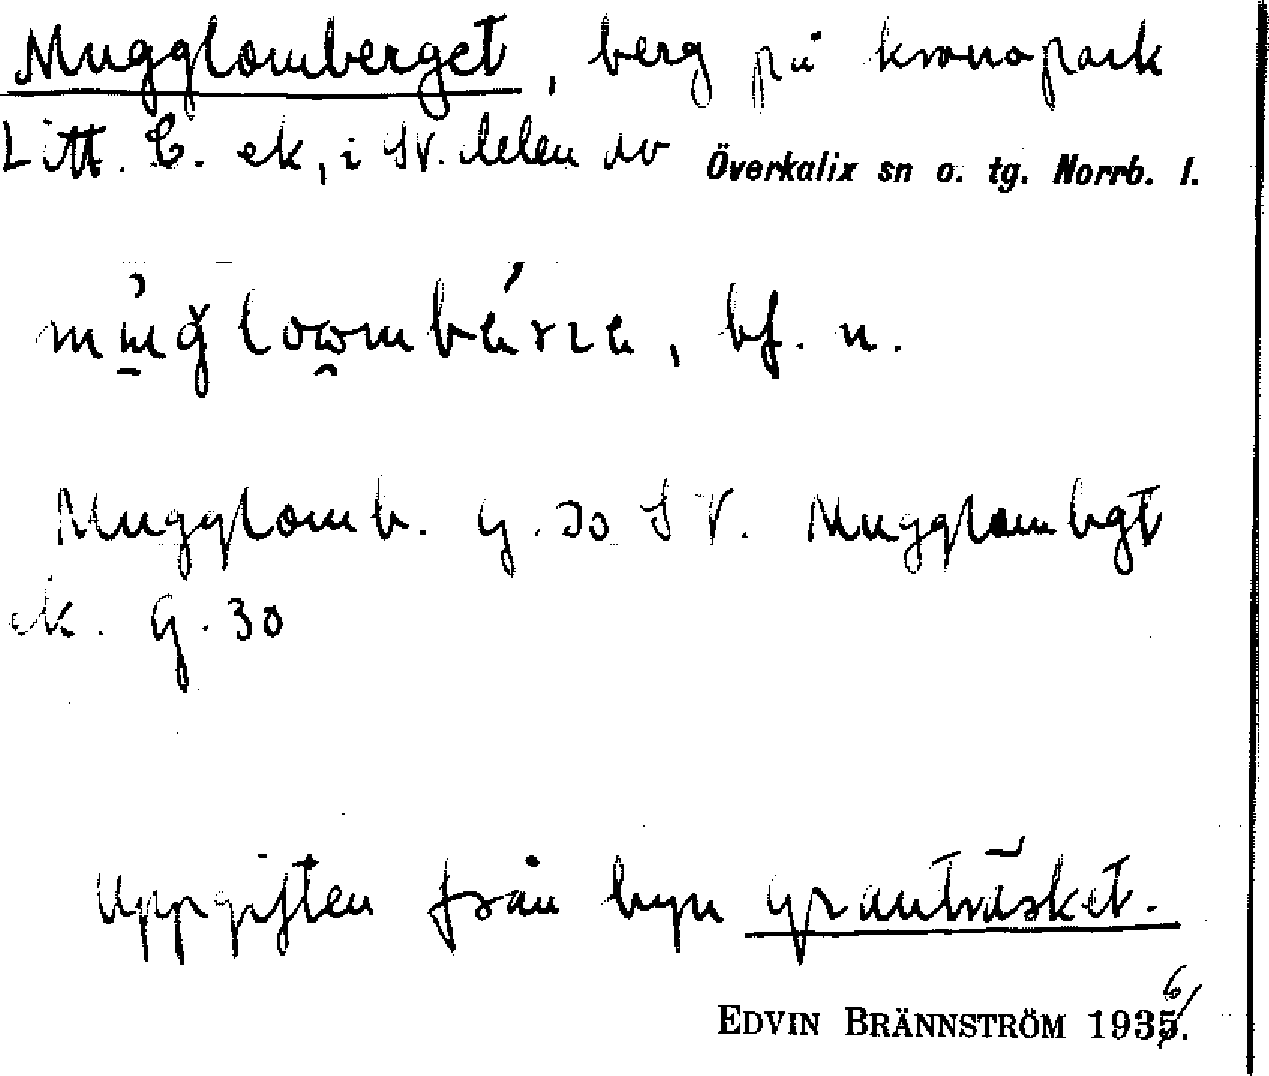 Mugglomberget, berg på kronopark
Litt. C. ek, i SV. delen av Överkalix sn o. tg. Norrb. l.
bf. n.
Mugglomb. G. 30 SV. Mugglombgt
ek. G. 30
Uppgiften från byn Granträsket.
EDVIN BRÄNNSTRÖM 1936.